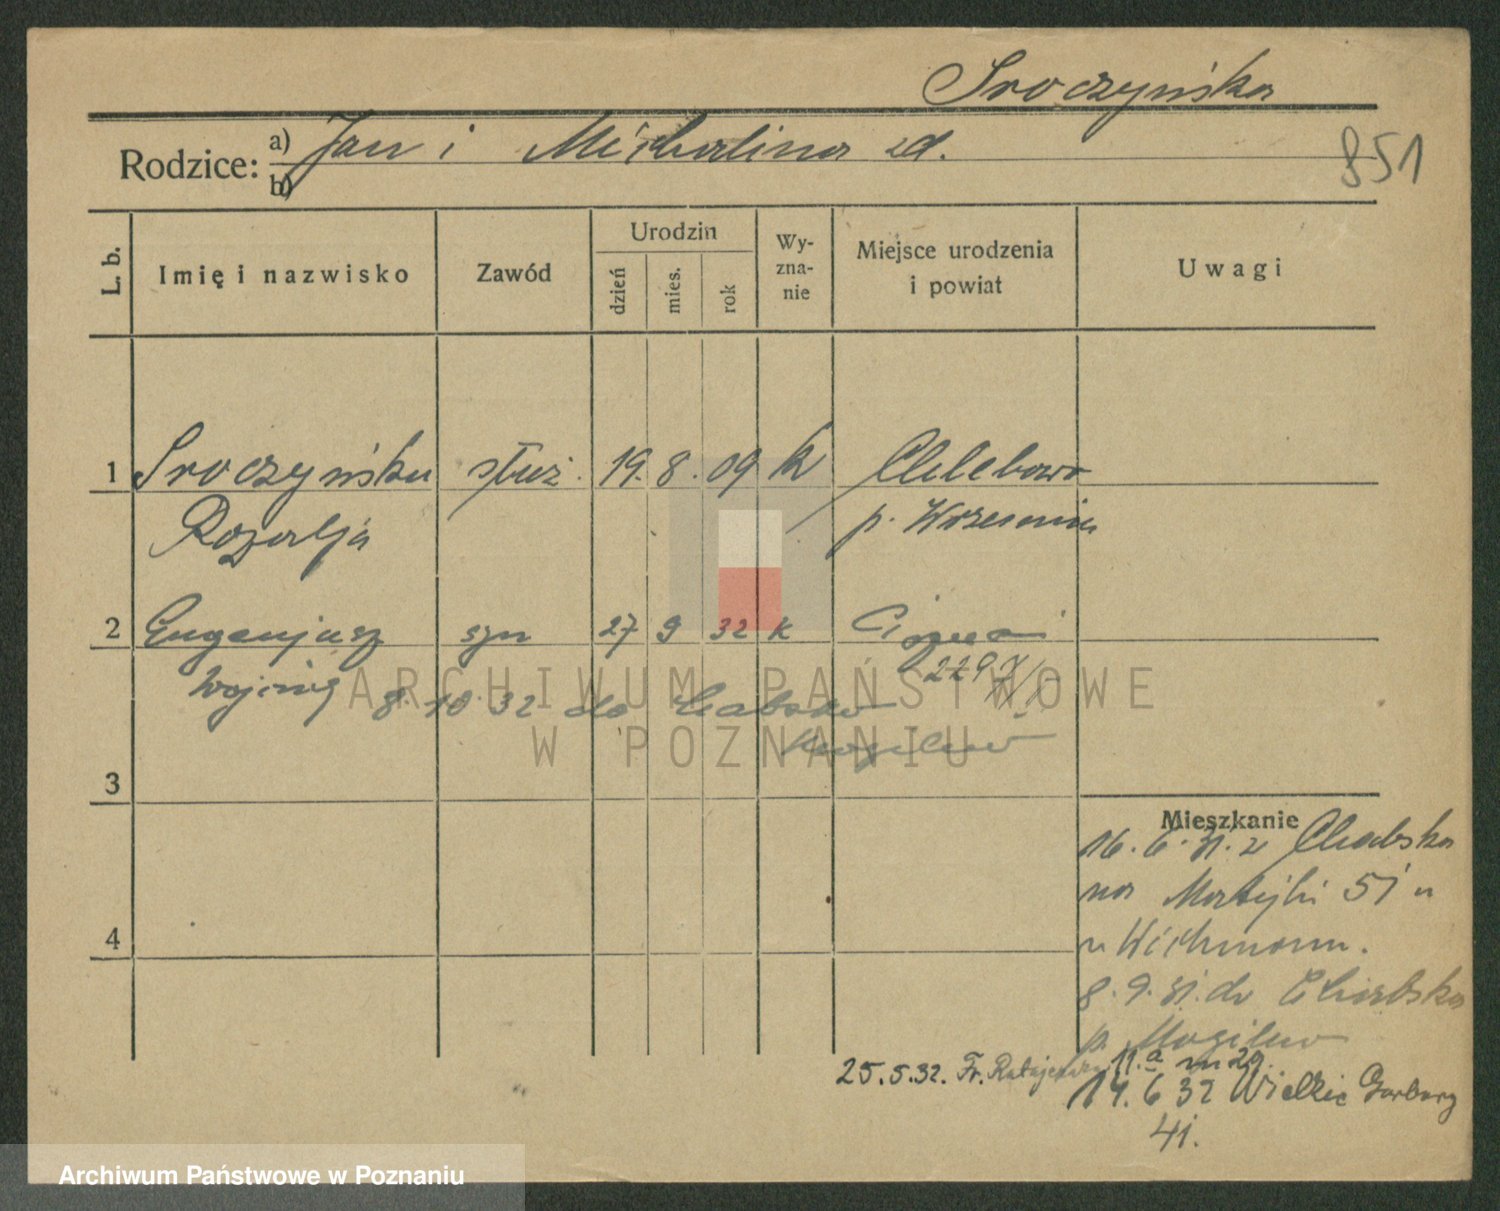 Sroczyńska
Rodzice: a) Jan i Michalina zd.
b)
851
L. b. Imię i nazwisko Zawód Urodzin dzień mies. rok Wy-zna-nie Miejsce urodzenia i powiat Uwagi
1 Sroczyńska służ. 19. 8. 09 k Chlebowo
Rozalja p. Września
2 Eugenjusz syn 27 9 32 k
229
8. 10 32 do
3
Mieszkanie
16. 6. 31. z Chabska
na Matejki 51
u Wichmann.
4
8. 9. 31. do Chabska
p. Mogilno
25. 5. 32. Fr. Ratajczaka 11.a m 29.
14. 6 32 Wielkie Garbary
41.
ARCHIWUM PAŃSTWOWE
W POZNANIU
Archiwum Państwowe w Poznaniu